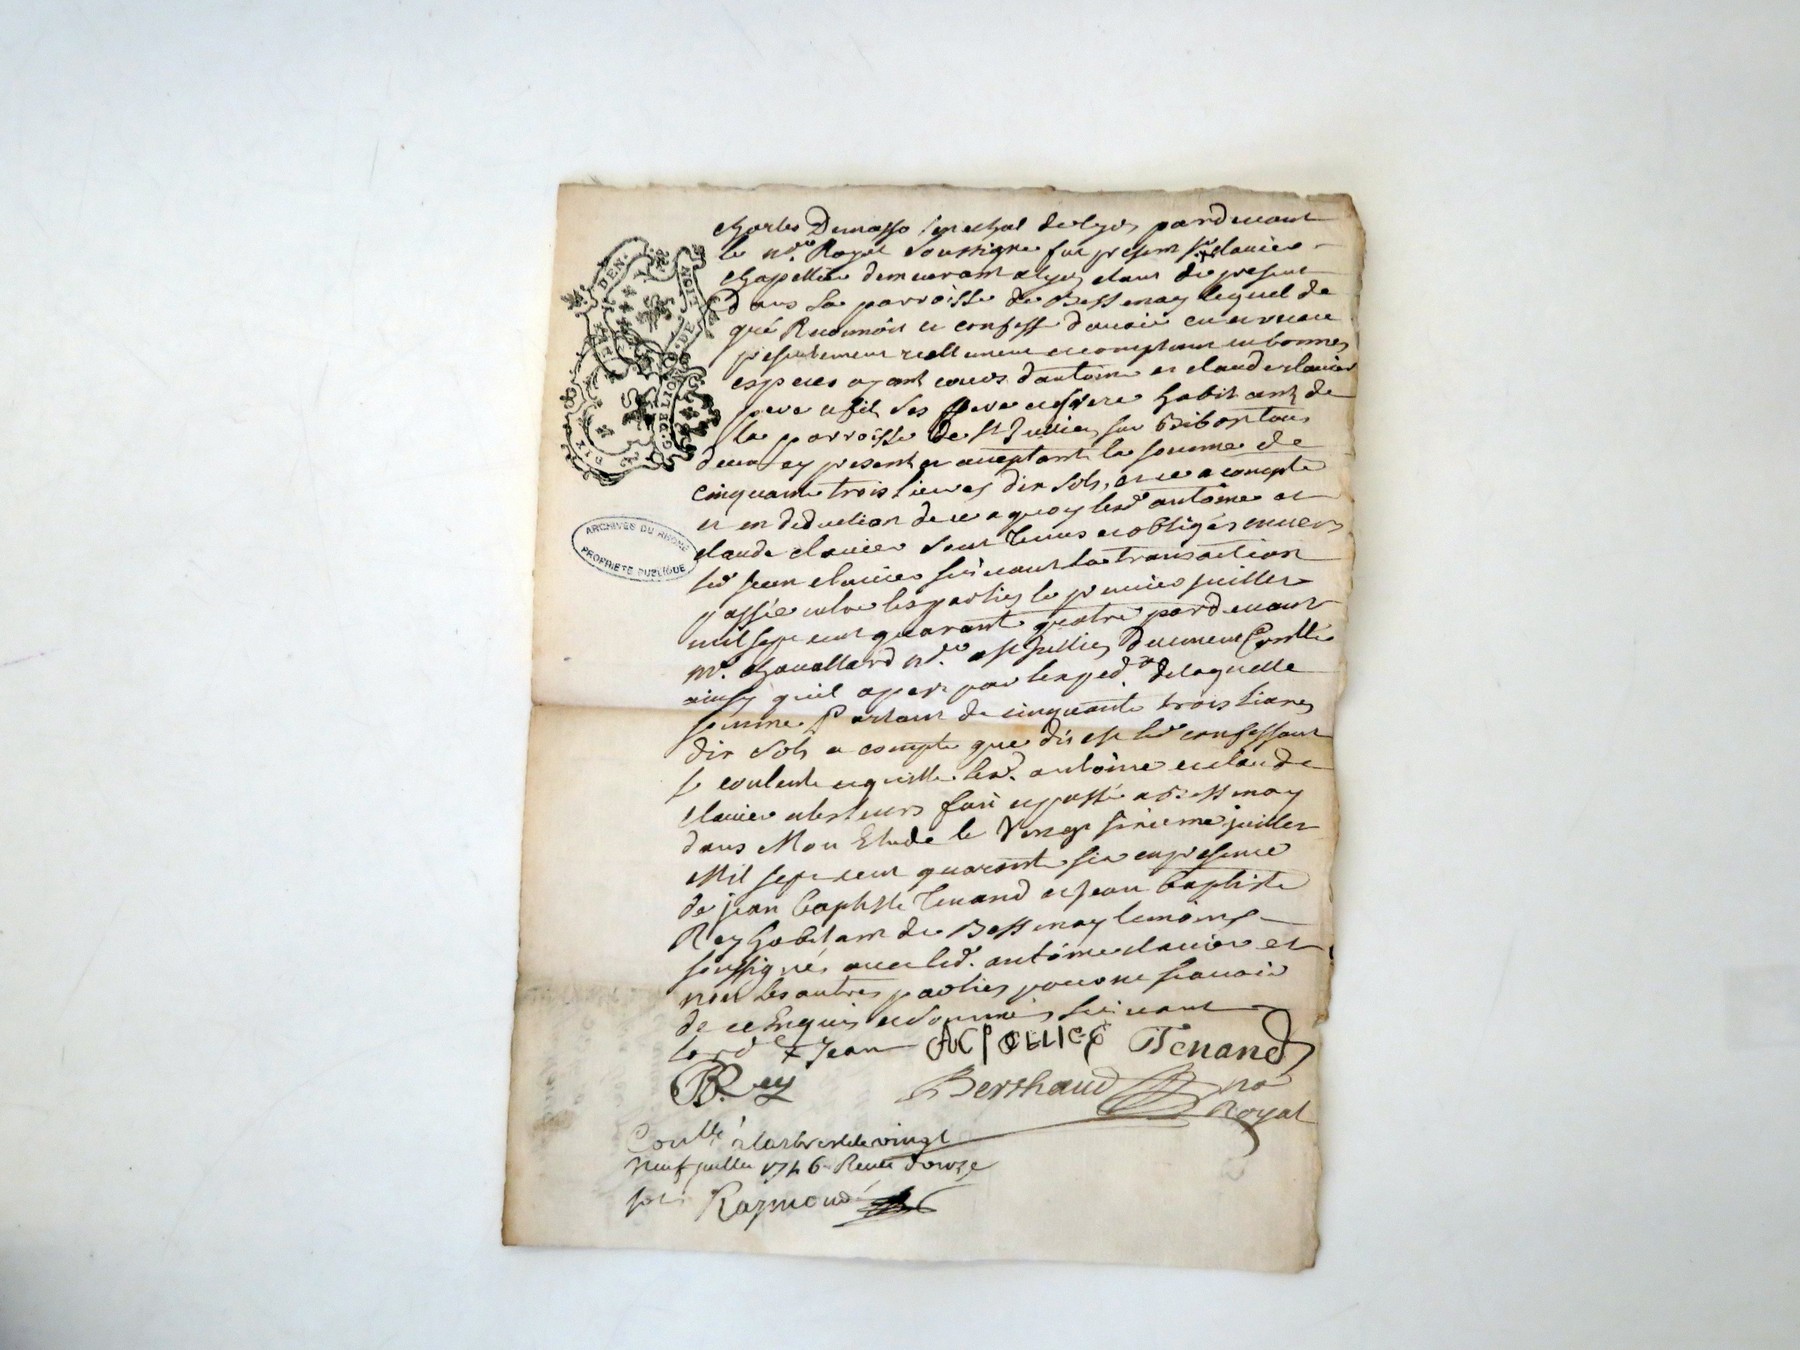 DEN. NOIT DE
G. DE LION
DIX
ARCHIVES DU RHONE
PROPRIETE PUBLIQUE
Charles Demasso senechal de lyon pardevant
le nre Royal soussigné fut present Jean clavier
chapellier demeurant a lyon etant de present
dans la parroisse de Bessenay lequel de
gré Reconnoit et confesse d'avoir eu et receu
presentement reellement et comptant en bonnes
especes ayant cours d'antoine et claude clavier
pere et fils ses pere et frere habitant de
la parroisse de st Jullien sur Bibost tous
deux cy present et acceptant la somme de
cinquante trois livres dix sols, et ce a compte
et en deduction de ce a quoy lesd antoine et
claude clavier sont tenus et obligés envers
led Jean clavier suivant la transaction
passée entre les parties le premier juillet
mil sept cent quarante quatre pardevant
me chavallard nre a st Jullien duement Conllé
ainsy quil apert par l'exped.on de laquelle
somme Partant de cinquante trois livres
dix sols a compte que dit est led confessant
se contente et quitte lesd. antoine et claude
clavier et les leurs fait et passé a Bessenay
dans Mon Etude le Vingt sixieme juillet
Mil sept cent quarante six en presence
de jean baptiste Tenand et Jean baptiste
Rey habitant de Bessenay temoins
soussignés avec led. antoine clavier et
non les autres parties pour ne scavoir
de ce Enquis et sommés suivant
lord Jean Tenand
B. Rey Berthaud no
Royal
Conllé a larbresle le vingt
neuf juillet 1746 Receu douze
sols Raymond